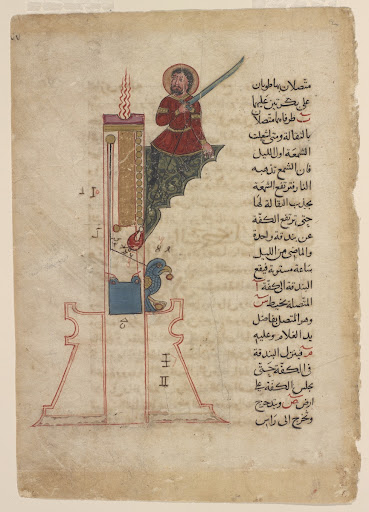 متصلان بها طوبان
على بكرتين عليهما
طرفاهما متصلان
بالثقالة ومتى اشعلت
الشمعة اول الليل
فان الشمع تذهبه
النار فترتفع الشمعة
بجذب الثقالة لها
حتى ترتفع الكفة
عن بندقة واحدة
والماضى من الليل
ساعة مستوية فيقع
البندقة الى الكفة
المتصلة بخيط س
وهو المتصل بفاضل
يد الغلام وعليه
فينزل البندقة
فى الكفة حتى
يجلس الكفة على
ارض ص ويتدحرج
وتخرج الى راس